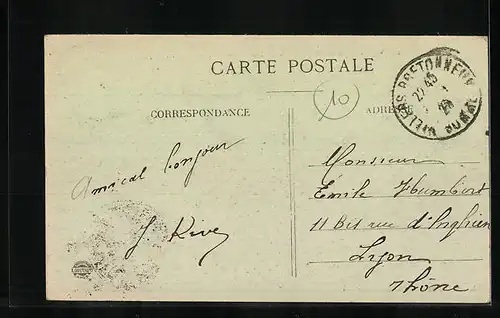 CARTE POSTALE
CORRESPONDANCE
ADRESSE
10
VILLERS-BRETONNEUX
22 45
SOMME
Amical bonjour
J Rive
Monsieur
Émile Humbert
11 Bis rue d'Inghien
Lyon
Rhône